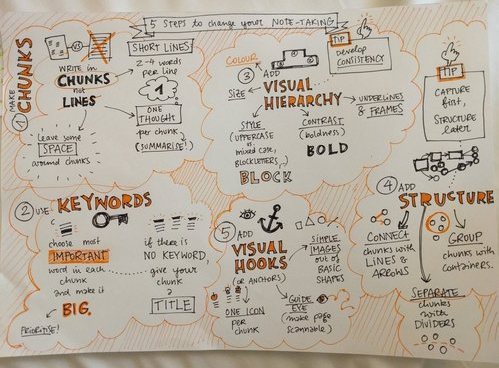 5 STEPS to change your NOTE-TAKING
① MAKE
CHUNKS
VS
WRITE in
CHUNKS
not
LINES
SHORT LINES
2-4 words
per line
1
ONE
THOUGHT
per chunk
(SUMMARISE!)
Leave some
SPACE
around chunks
② USE KEYWORDS
choose most
IMPORTANT
word in each
chunk
and make it
BIG.
PRIORITISE!
if there is
NO KEYWORD,
give your
chunk
a
TITLE
③ ADD
VISUAL
HIERARCHY
COLOUR
SIZE
STYLE
(UPPERCASE
vs
mixed case,
BLOCKLETTERS)
BLOCK
CONTRAST
(boldness)
BOLD
UNDERLINES
& FRAMES
TIP
develop
CONSISTENCY
TIP
CAPTURE
first,
STRUCTURE
later
④ ADD
STRUCTURE
CONNECT
chunks with
LINES &
ARROWS
GROUP
chunks with
containers.
SEPARATE
chunks
with
DIVIDERS
⑤ ADD
VISUAL
HOOKS
(OR ANCHORS)
SIMPLE
IMAGES
out of
BASIC
SHAPES
ONE ICON
per
chunk
GUIDE
EYE
(make page
scannable)